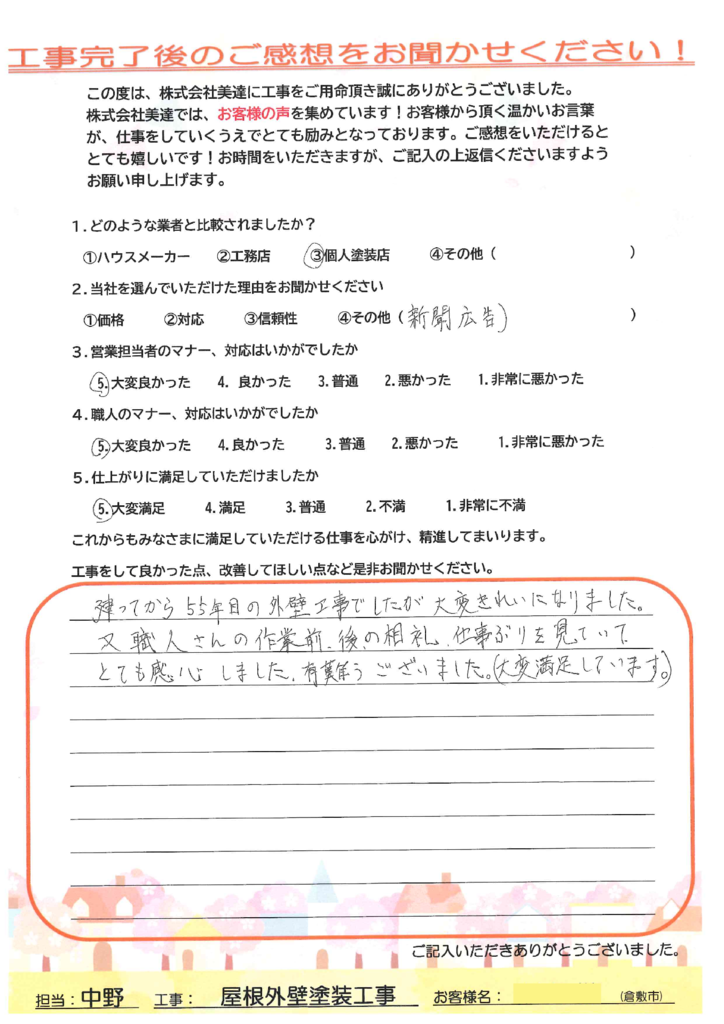 工事完了後のご感想をお聞かせください！
この度は、株式会社美達に工事をご用命頂き誠にありがとうございました。
株式会社美達では、お客様の声を集めています！お客様から頂く温かいお言葉
が、仕事をしていくうえでとても励みとなっております。ご感想をいただけると
とても嬉しいです！お時間をいただきますが、ご記入の上返信くださいますよう
お願い申し上げます。
1.どのような業者と比較されましたか？
①ハウスメーカー ②工務店 ③個人塗装店 ④その他（ ）
2.当社を選んでいただけた理由をお聞かせください
①価格 ②対応 ③信頼性 ④その他（新聞広告） ）
3.営業担当者のマナー、対応はいかがでしたか
5.大変良かった 4. 良かった 3.普通 2.悪かった 1.非常に悪かった
4.職人のマナー、対応はいかがでしたか
5.大変良かった 4.良かった 3.普通 2.悪かった 1.非常に悪かった
5.仕上がりに満足していただけましたか
5.大変満足 4.満足 3.普通 2.不満 1.非常に不満
これからもみなさまに満足していただける仕事を心がけ、精進してまいります。
工事をして良かった点、改善してほしい点など是非お聞かせください。
建ってから55年目の外壁工事でしたが大変きれいになりました。
又職人さんの作業前、後の相礼、仕事ぶりを見ていて
とても感心しました。有難うございました。(大変満足しています。)
ご記入いただきありがとうございました。
担当：中野 工事： 屋根外壁塗装工事 お客様名： （倉敷市）